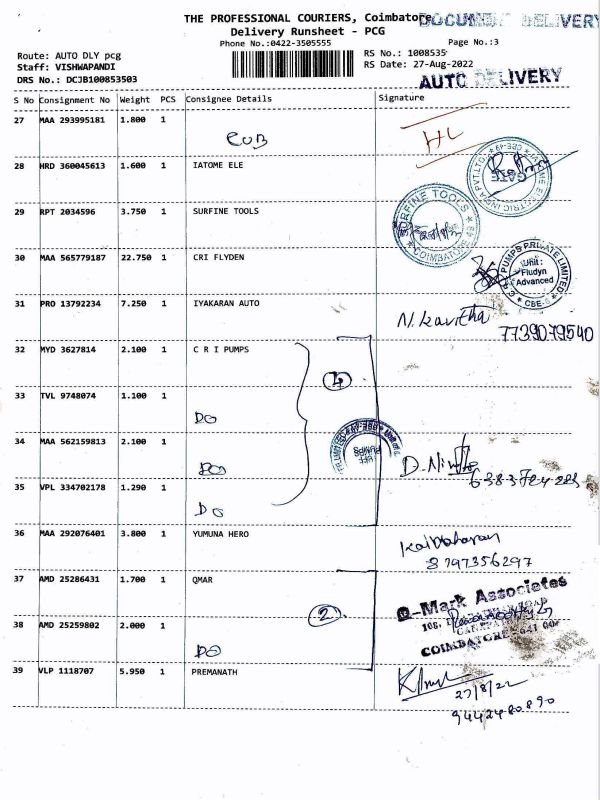 THE PROFESSIONAL COURIERS, Coimbatore
DOCUMENT DELIVERY
Delivery Runsheet - PCG
Phone No.:0422-3505555
Page No.:3
Route: AUTO DLY pcg
RS No.: 1008535
Staff: VISHWAPANDI
RS Date: 27-Aug-2022
DRS No.: DCJB100853503
AUTO DELIVERY
S No Consignment No Weight PCS Consignee Details Signature
27 MAA 293995181 1.800 1
CUB
HL
28 HRD 360045613 1.600 1 IATOME ELE
GATE
29 RPT 2034596 3.750 1 SURFINE TOOLS
SURFINE TOOLS
COIMBATORE
30 MAA 565779187 22.750 1 CRI FLYDEN
PUMPS PRIVATE LIMITED
Unit:
Fludyn
Advanced
CBE-6
31 PRO 13792234 7.250 1 IYAKARAN AUTO
N. Kavitha
7739079540
32 MYD 3627814 2.100 1 C R I PUMPS
4
33 TVL 9748074 1.100 1
DO
34 MAA 562159813 2.100 1
DO
PUMPS
35 VPL 334702178 1.290 1
DO
36 MAA 292076401 3.800 1 YUMUNA HERO
8797356297
37 AMD 25286431 1.700 1 QMAR
2
Q-Mark Associates
38 AMD 25259802 2.000 1
DO
COIMBATORE - 641 006
39 VLP 1118707 5.950 1 PREMANATH
27/8/22
9442480890